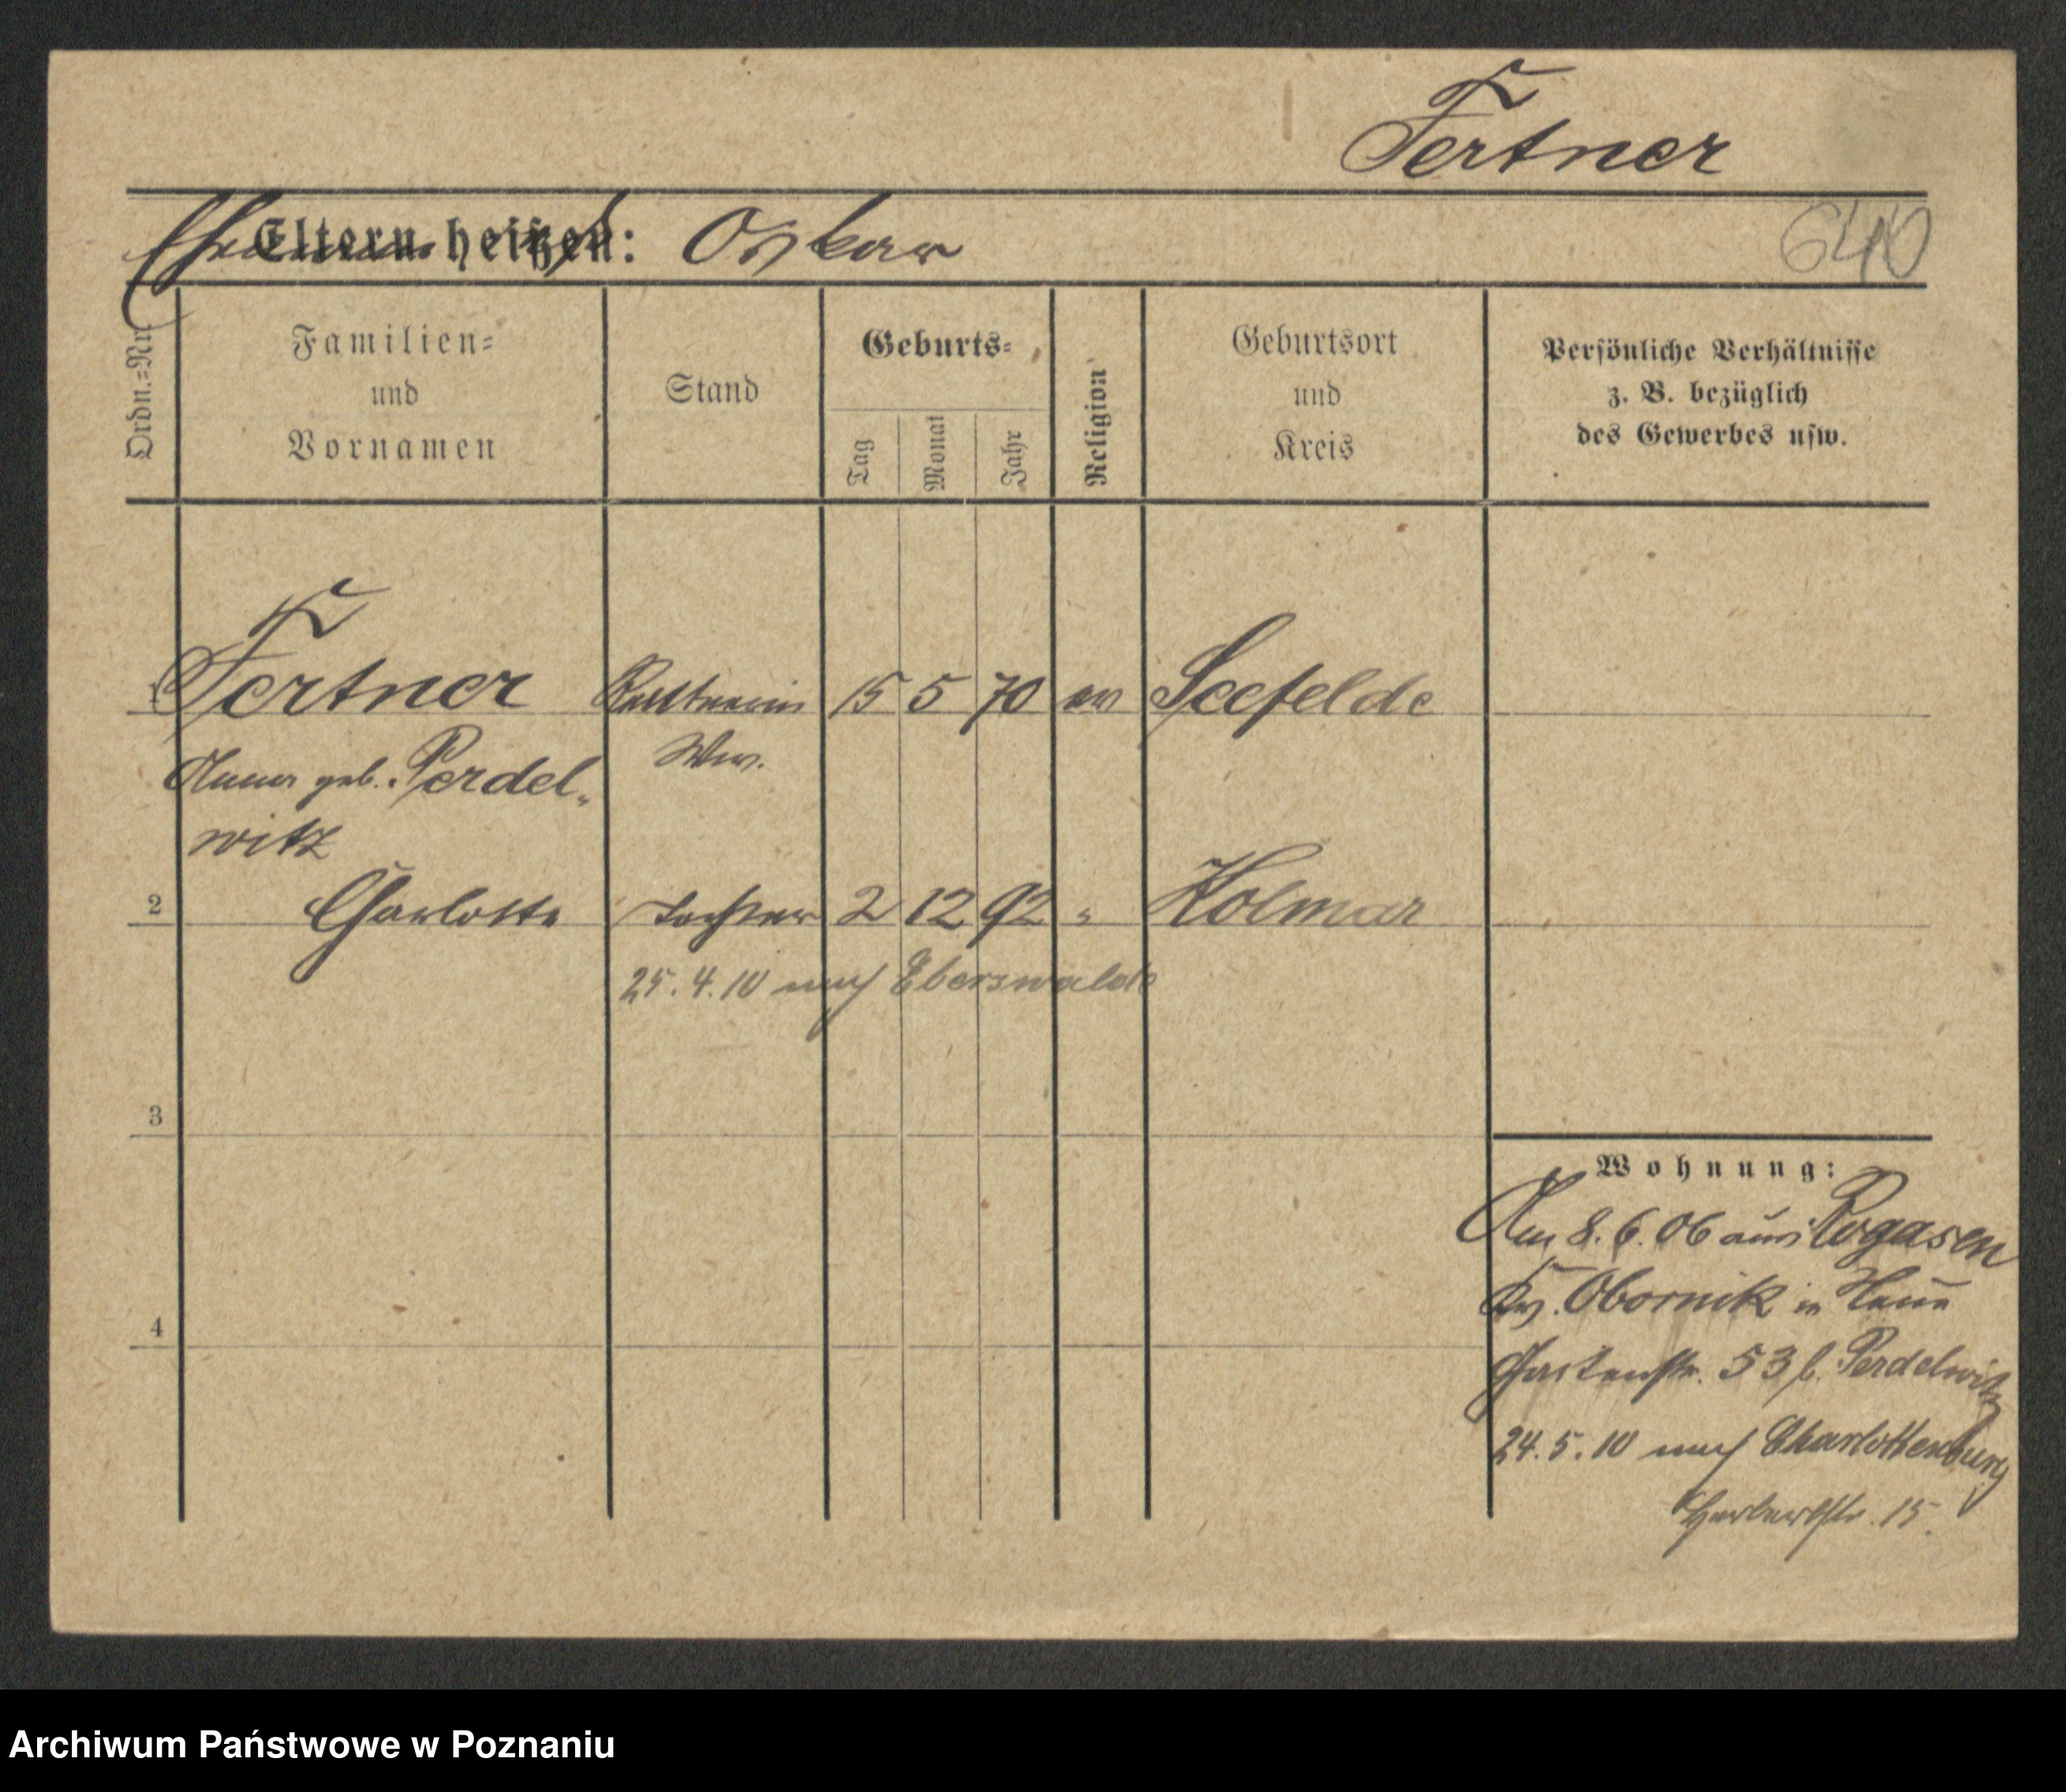 Fertner
Eltern heißen: Oskar
640
Ordn.=Nr.
Familien=
und
Vornamen
Stand
Geburts=
Tag
Monat
Jahr
Religion
Geburtsort
und
Kreis
Persönliche Verhältnisse
z. B. bezüglich
des Gewerbes usw.
1 Fertner 15 5 70 ev Seefelde
Ww.
Anna geb. Perdel-
witz
2 Charlotte Tochter 2 12 92 " Kolmar
25.4.10 nach Eberswalde
3
4
Wohnung:
Am 8.6.06 aus Rogasen
Kr. Obornik in
Gartenstr. 53 b. Perdelwitz
24.5.10 nach Charlottenburg
Herbartstr. 15.
Archiwum Państwowe w Poznaniu